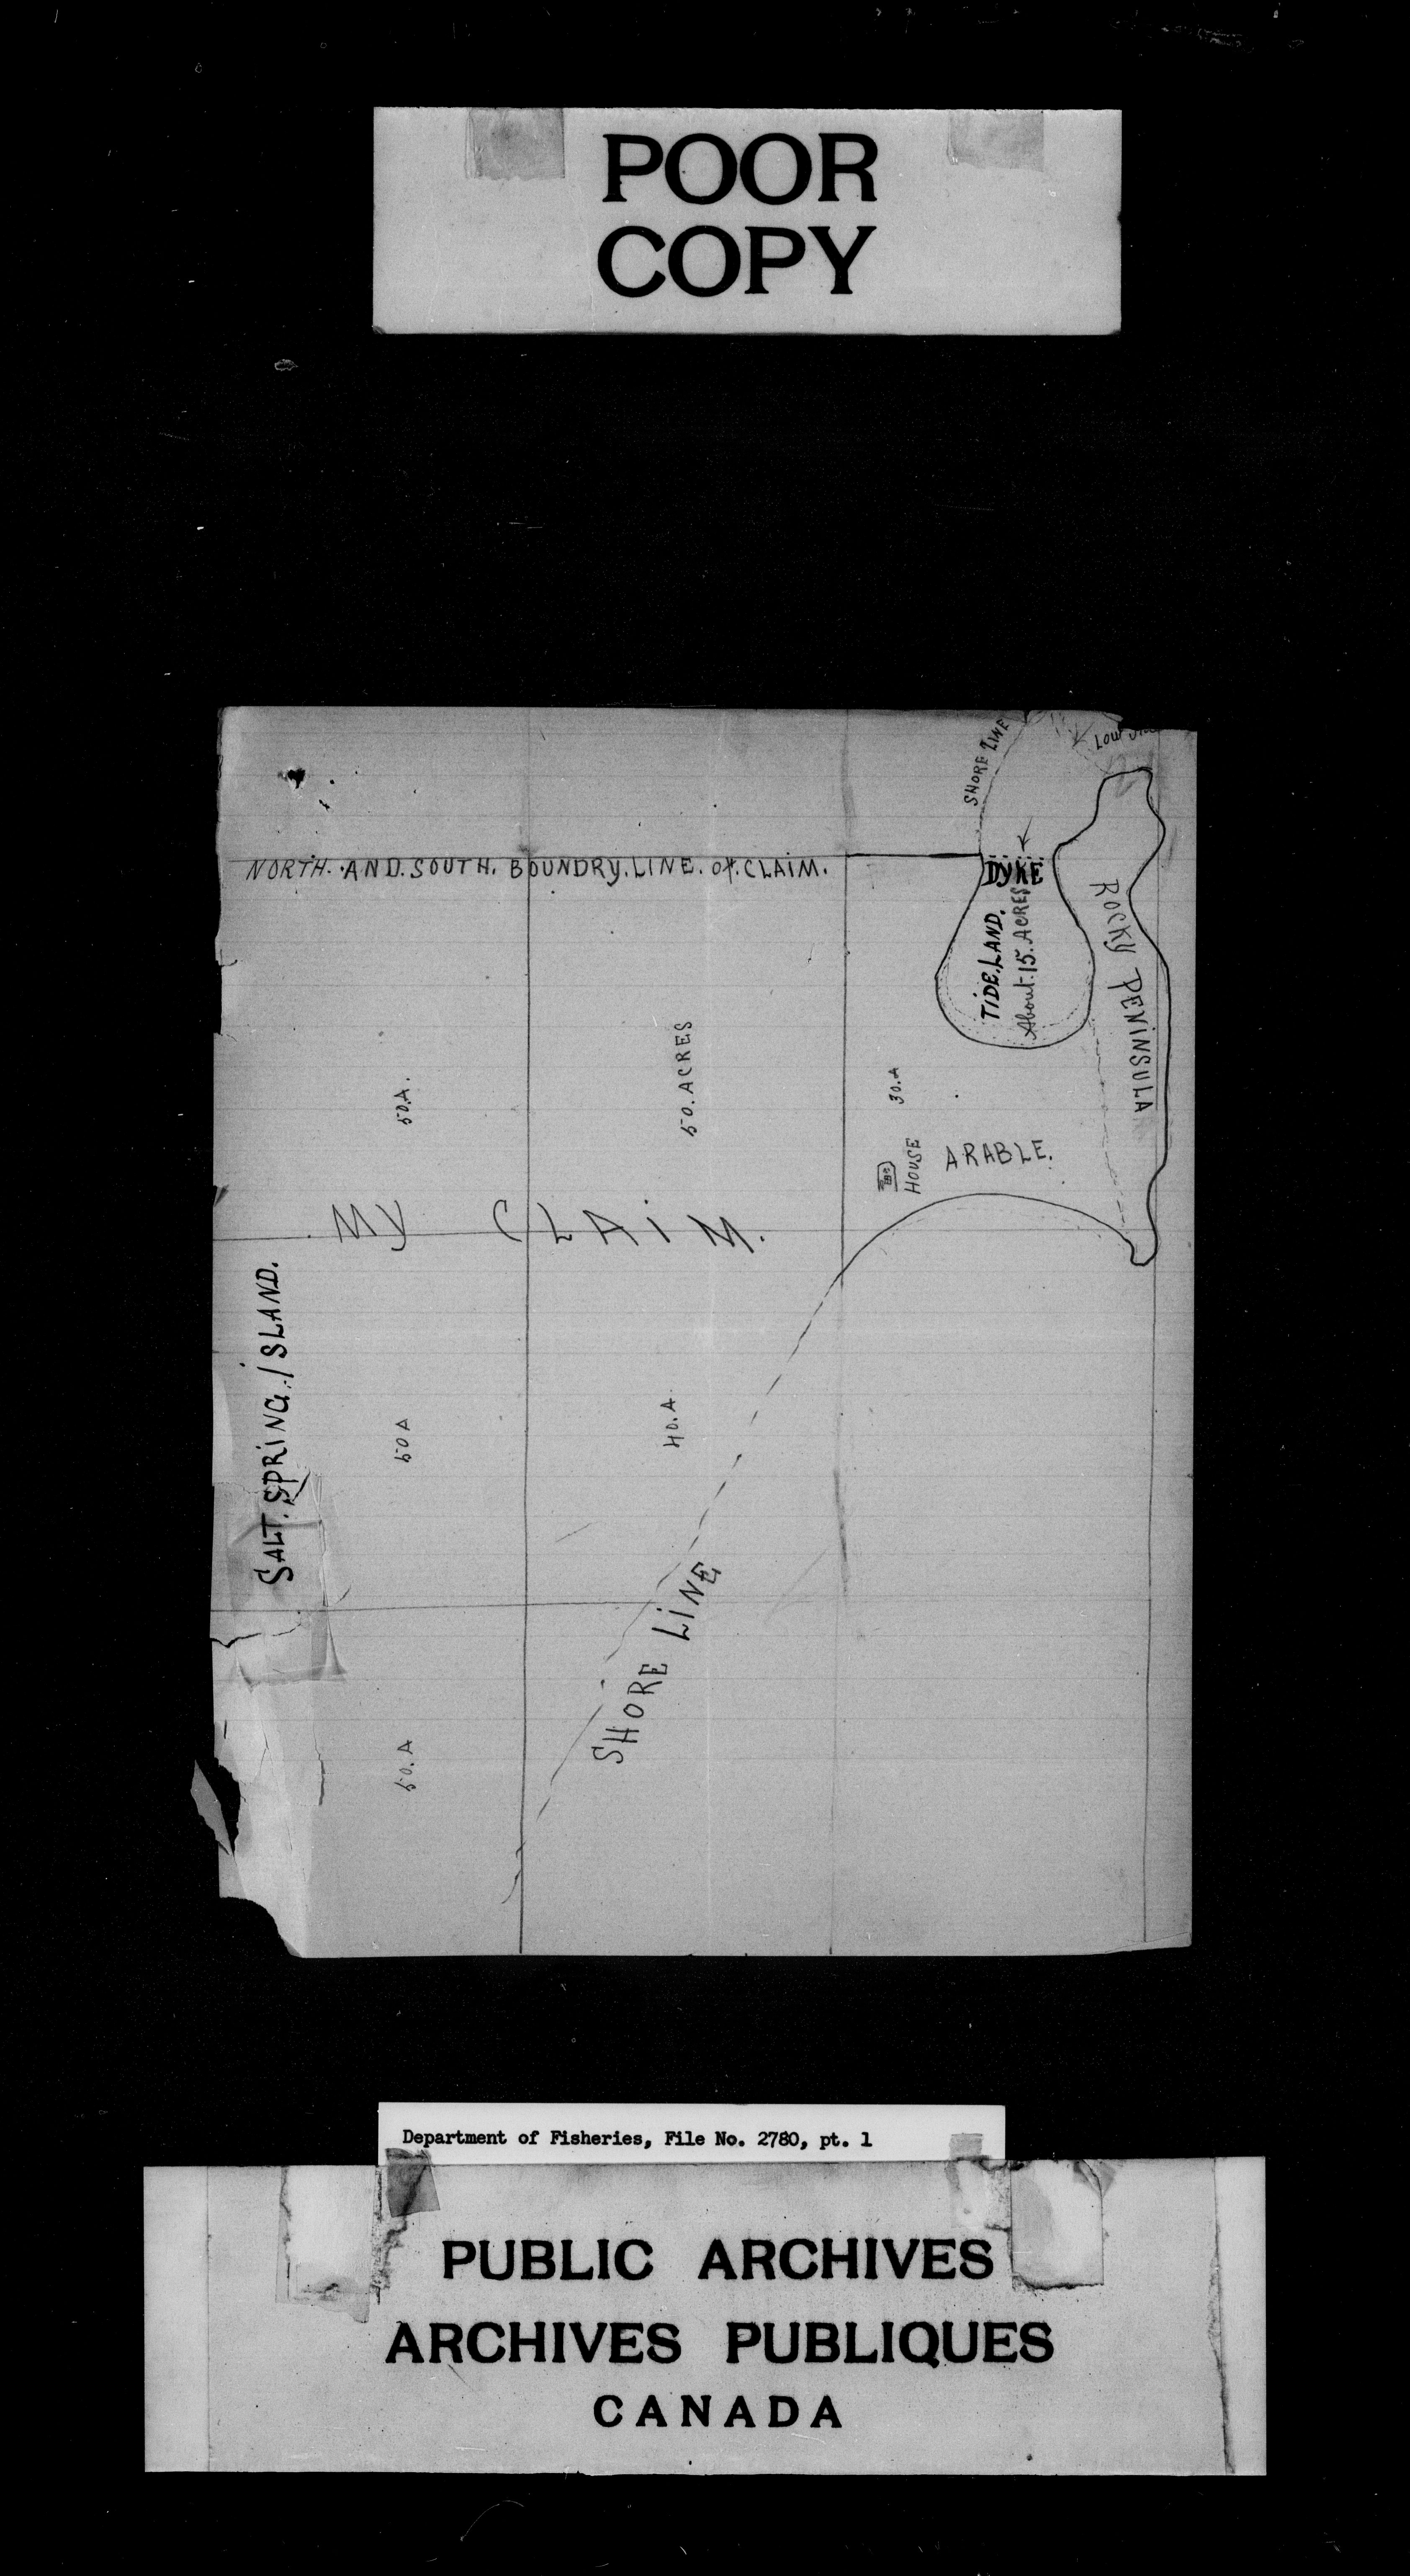 POOR
COPY
SHORE LINE
LOW
NORTH. AND. SOUTH. BOUNDRY. LINE. Of. CLAIM.
DYKE
TIDE. LAND.
About. 15. ACRES
ROCKY PENINSULA
50.A.
50. ACRES
30.A
HOUSE
ARABLE.
MY CLAIM.
SALT. SPRING. ISLAND.
50 A
40. A
SHORE LINE
50. A
Department of Fisheries, File No. 2780, pt. 1
PUBLIC ARCHIVES
ARCHIVES PUBLIQUES
CANADA